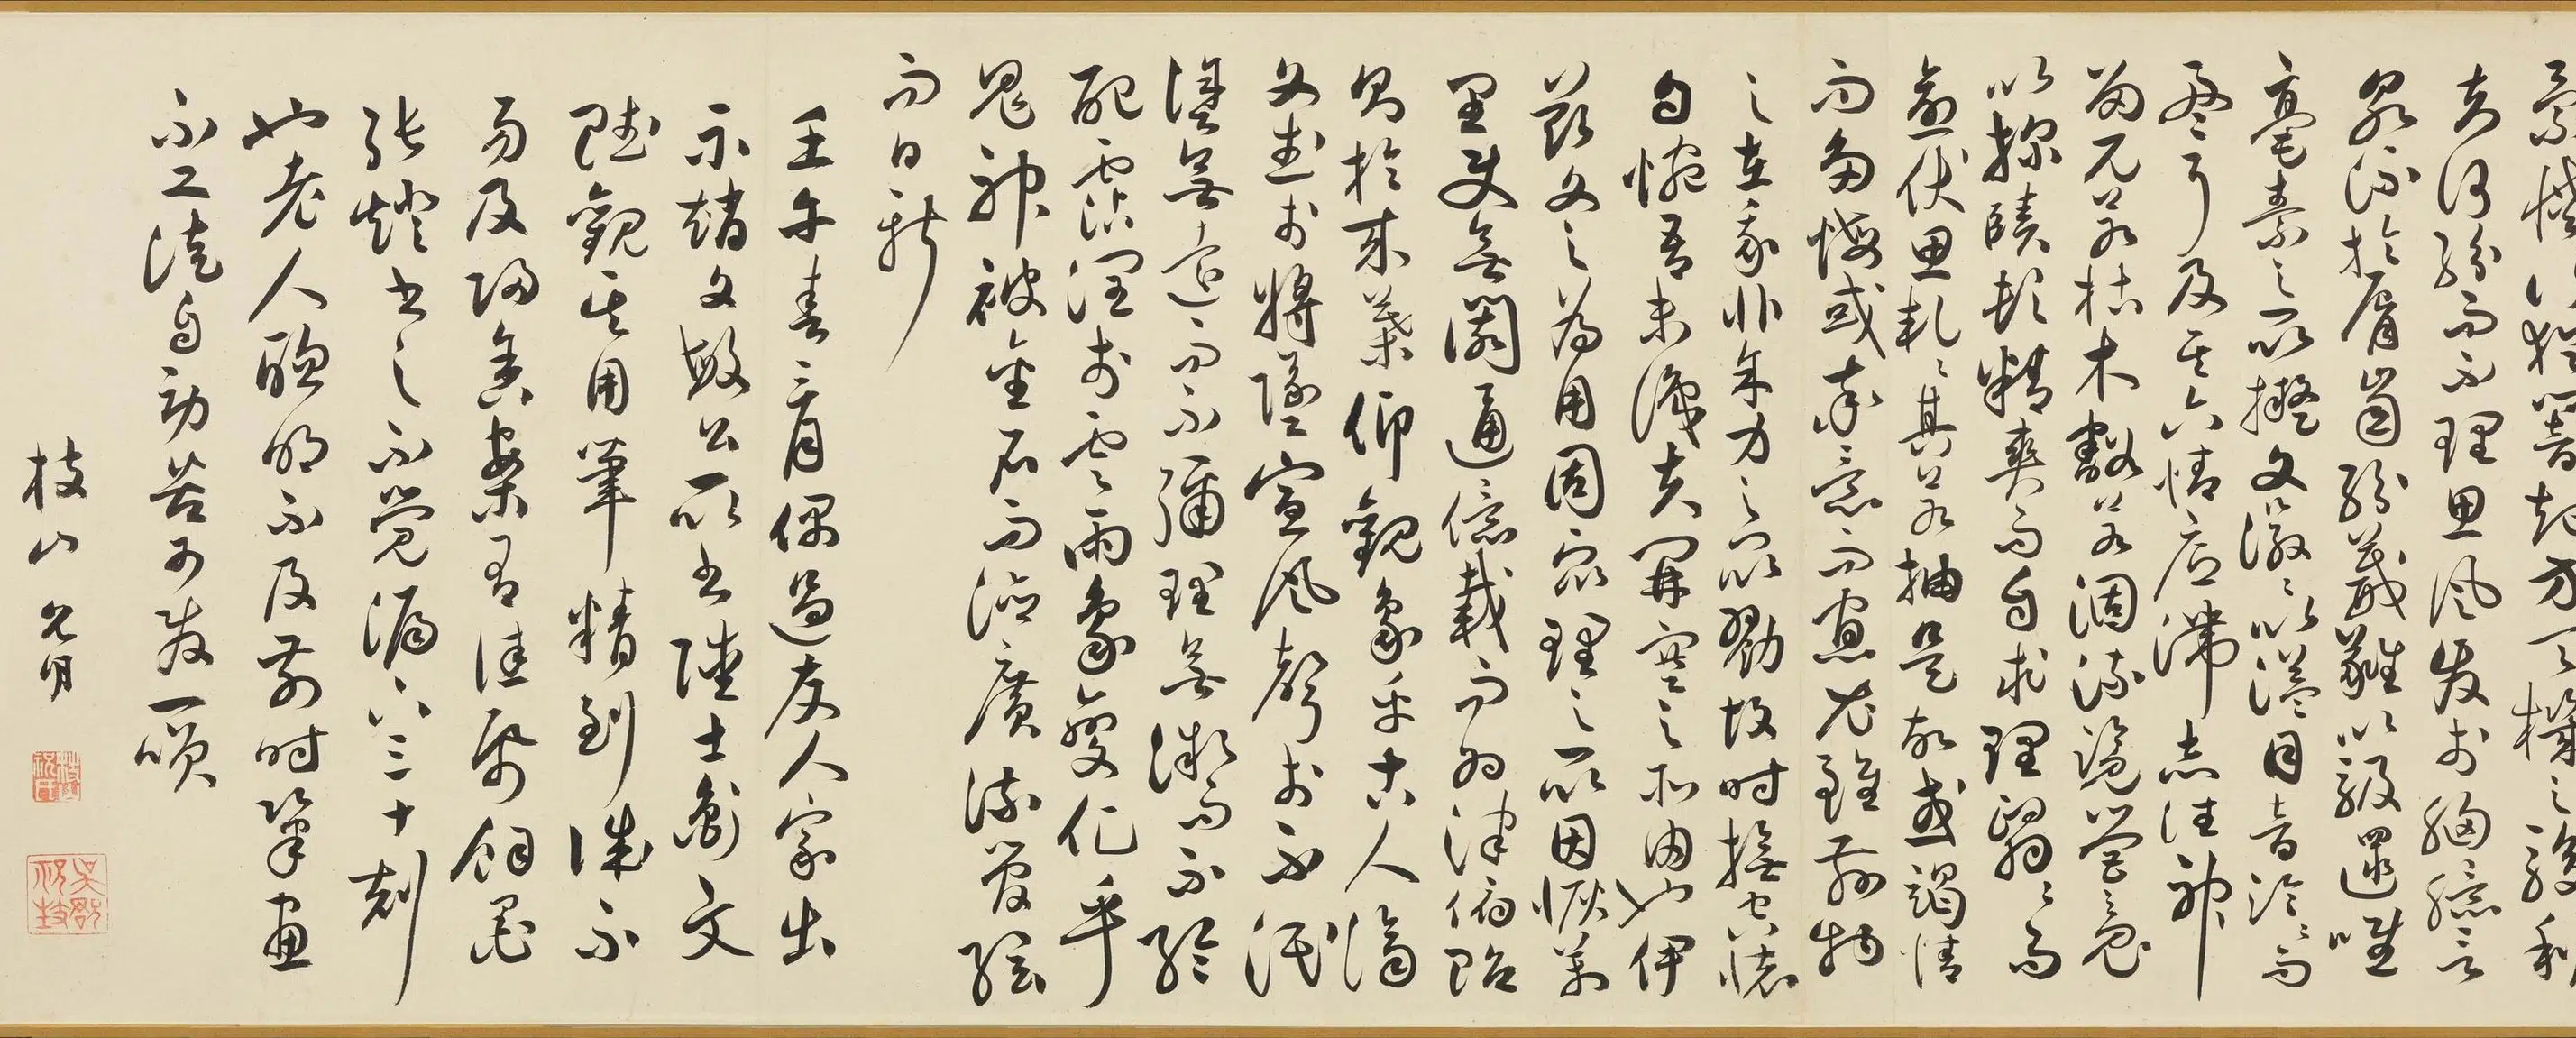 景滅行猶響起方天機之駿利
夫何紛而不理思風發於胸臆言
泉流於脣齒紛葳蕤以馺遝唯
毫素之所擬文徽徽以溢目音泠泠而
盈耳及其六情底滯志往神
留兀若枯木豁若涸流覽營魂
以探賾頓精爽而自求理翳翳而
愈伏思軋軋其若抽是故或竭情
而多悔或率意而寡尤雖茲物
之在我非余力之所勠故時撫空懷
自惋吾未識夫開塞之所由也伊
茲文之為用固衆理之所因恢萬
里使無閡通億載而為津俯貽
則於來葉仰觀象乎古人濟
文武於將墜宣風聲於不泯
塗無遠而不彌理無微而不綸
配霑潤於雲雨象變化乎
鬼神被金石而德廣流管絃
而日新
壬午春二月偶過友人家出
示趙文敏公所書陸士衡文
賦觀其用筆精到誠不
易及歸舍案有佳紙墨
張燈書之不覺漏下三十刻
也老人聰明不及前時筆畫
不工徒自勤苦可發一噱
枝山允明